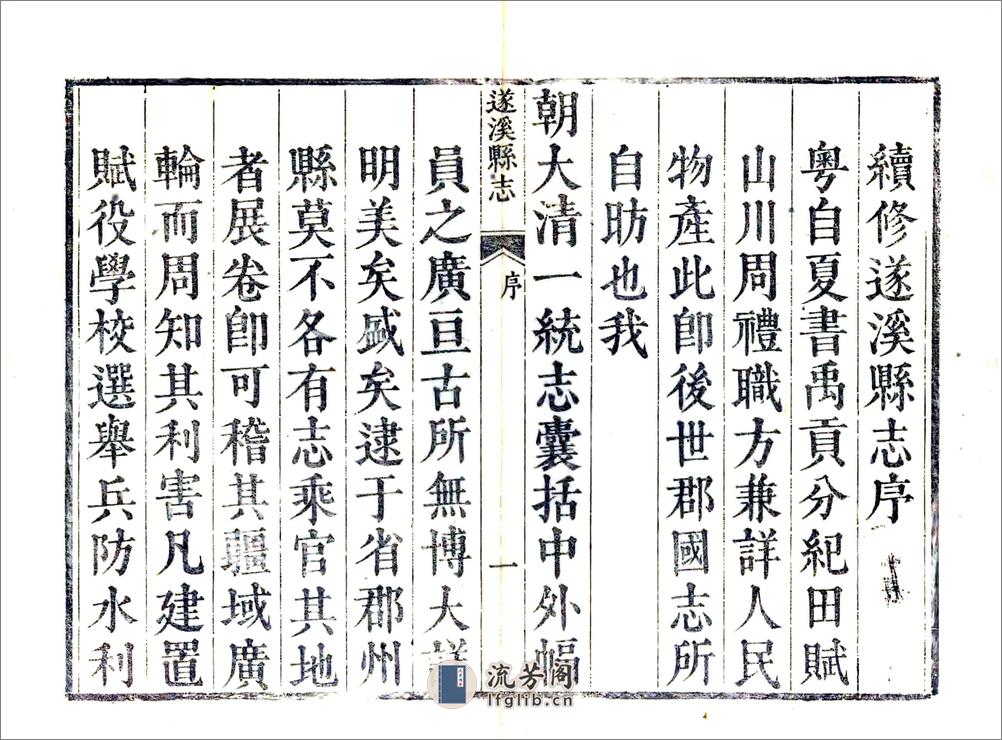 續修遂溪縣志序
粵自夏書禹貢分紀田賦
山川周禮職方兼詳人民
物產此卽後世郡國志所
自昉也我
朝大清一統志囊括中外幅
遂溪縣志
序
一
員之廣亘古所無博大詳
明美矣盛矣逮于省郡州
縣莫不各有志乘官其地
者展卷卽可稽其疆域廣
輪而周知其利害凡建置
賦役學校選舉兵防水利
流芳阁
lfglib.cn